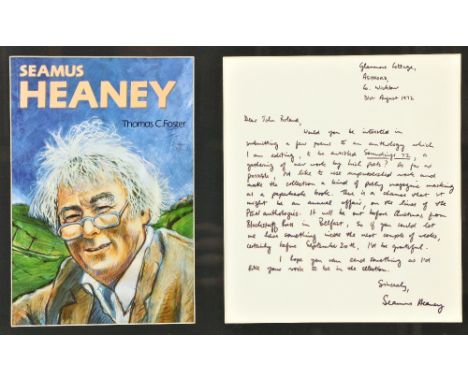 SEAMUS
HEANEY
Thomas C. Foster
Glanmore Cottage,
Ashford,
Co. Wicklow
31st August 1972
Dear John Boland,
Would you be interested in
submitting a few poems to an anthology which
I am editing, to be entitled Soundings '72, a
gathering of new work by Irish poets? As far as
possible, I'd like to use unpublished work and
make the collection a kind of poetry magazine masking
as a paperback book. There is a chance that it
might be an annual affair, on the lines of the
PEN anthologies. It will be out before Christmas from
Blackstaff Press in Belfast, so if you could let
me have something inside the next couple of weeks,
certainly before September 20th, I'd be grateful.
I hope you can send something as I'd
like your work to be in the collection.
Sincerely,
Seamus Heaney